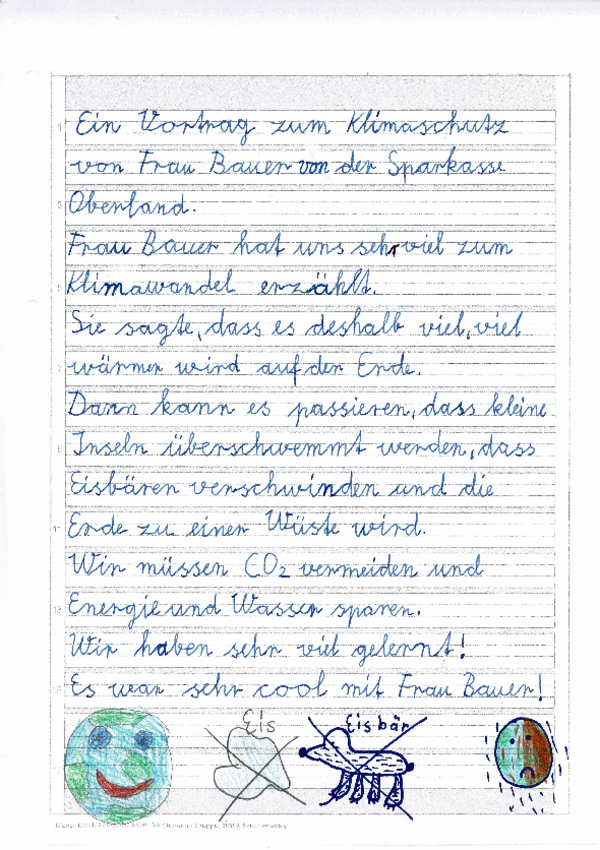 Ein Vortrag zum Klimaschutz
von Frau Bauer von der Sparkasse
Oberland.
Frau Bauer hat uns sehr viel zum
Klimawandel erzählt.
Sie sagte, dass es deshalb viel, viel
wärmer wird auf der Erde.
Dann kann es passieren, dass kleine
Inseln überschwemmt werden, dass
Eisbären verschwinden und die
Erde zu einer Wüste wird.
Wir müssen CO2 vermeiden und
Energie und Wasser sparen.
Wir haben sehr viel gelernt!
Es war sehr cool mit Frau Bauer!
Eis Eisbär